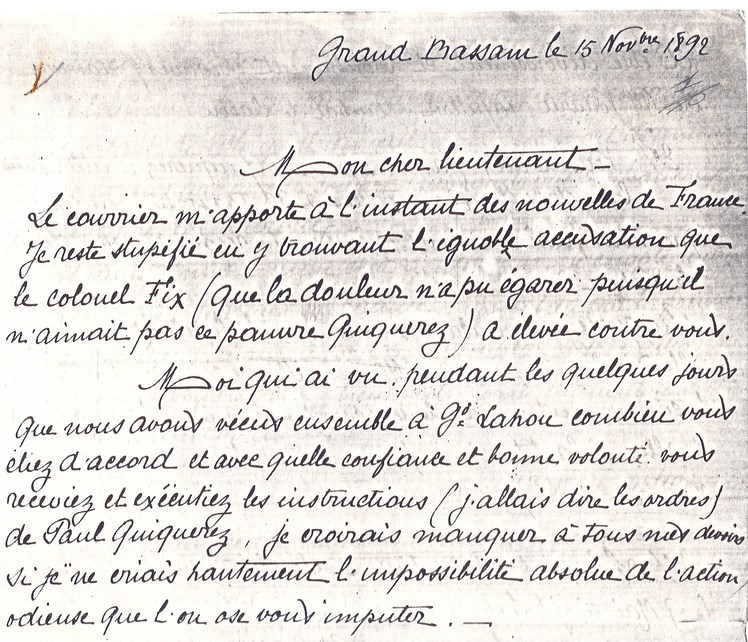 Grand Bassam le 15 Novbre 1892
Mon cher lieutenant —
Le courrier m'apporte à l'instant des nouvelles de France
Je reste stupéfié en y trouvant l'ignoble accusation que
le colonel Fix (que la douleur n'a pu égarer puisqu'il
n'aimait pas ce pauvre Quiquerez) a élevée contre vous.
Moi qui ai vu, pendant les quelques jours
que nous avons vécus ensemble à Gd Lahou combien vous
étiez d'accord et avec quelle confiance et bonne volonté vous
receviez et exécutiez les instructions (j'allais dire les ordres)
de Paul Quiquerez, je croirais manquer à tous mes devoirs
si je ne criais hautement l'impossibilité absolue de l'action
odieuse que l'on ose vous imputer. —